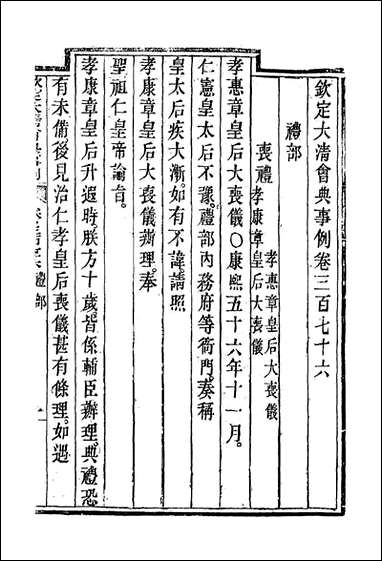 欽定大清會典事例卷三百七十六
禮部
喪禮 孝惠章皇后大喪儀
孝康章皇后大喪儀
孝惠章皇后大喪儀〇康熙五十六年十一月。
仁憲皇太后不豫。禮部內務府等衙門。奏稱
皇太后疾大漸。如有不諱。請照
孝康章皇后大喪儀辦理。奉
聖祖仁皇帝諭旨。
孝康章皇后升遐時。朕方十歲。皆係輔臣辦理。典禮恐
有未備。後見治仁孝皇后喪儀甚有條理。如遇
禮部